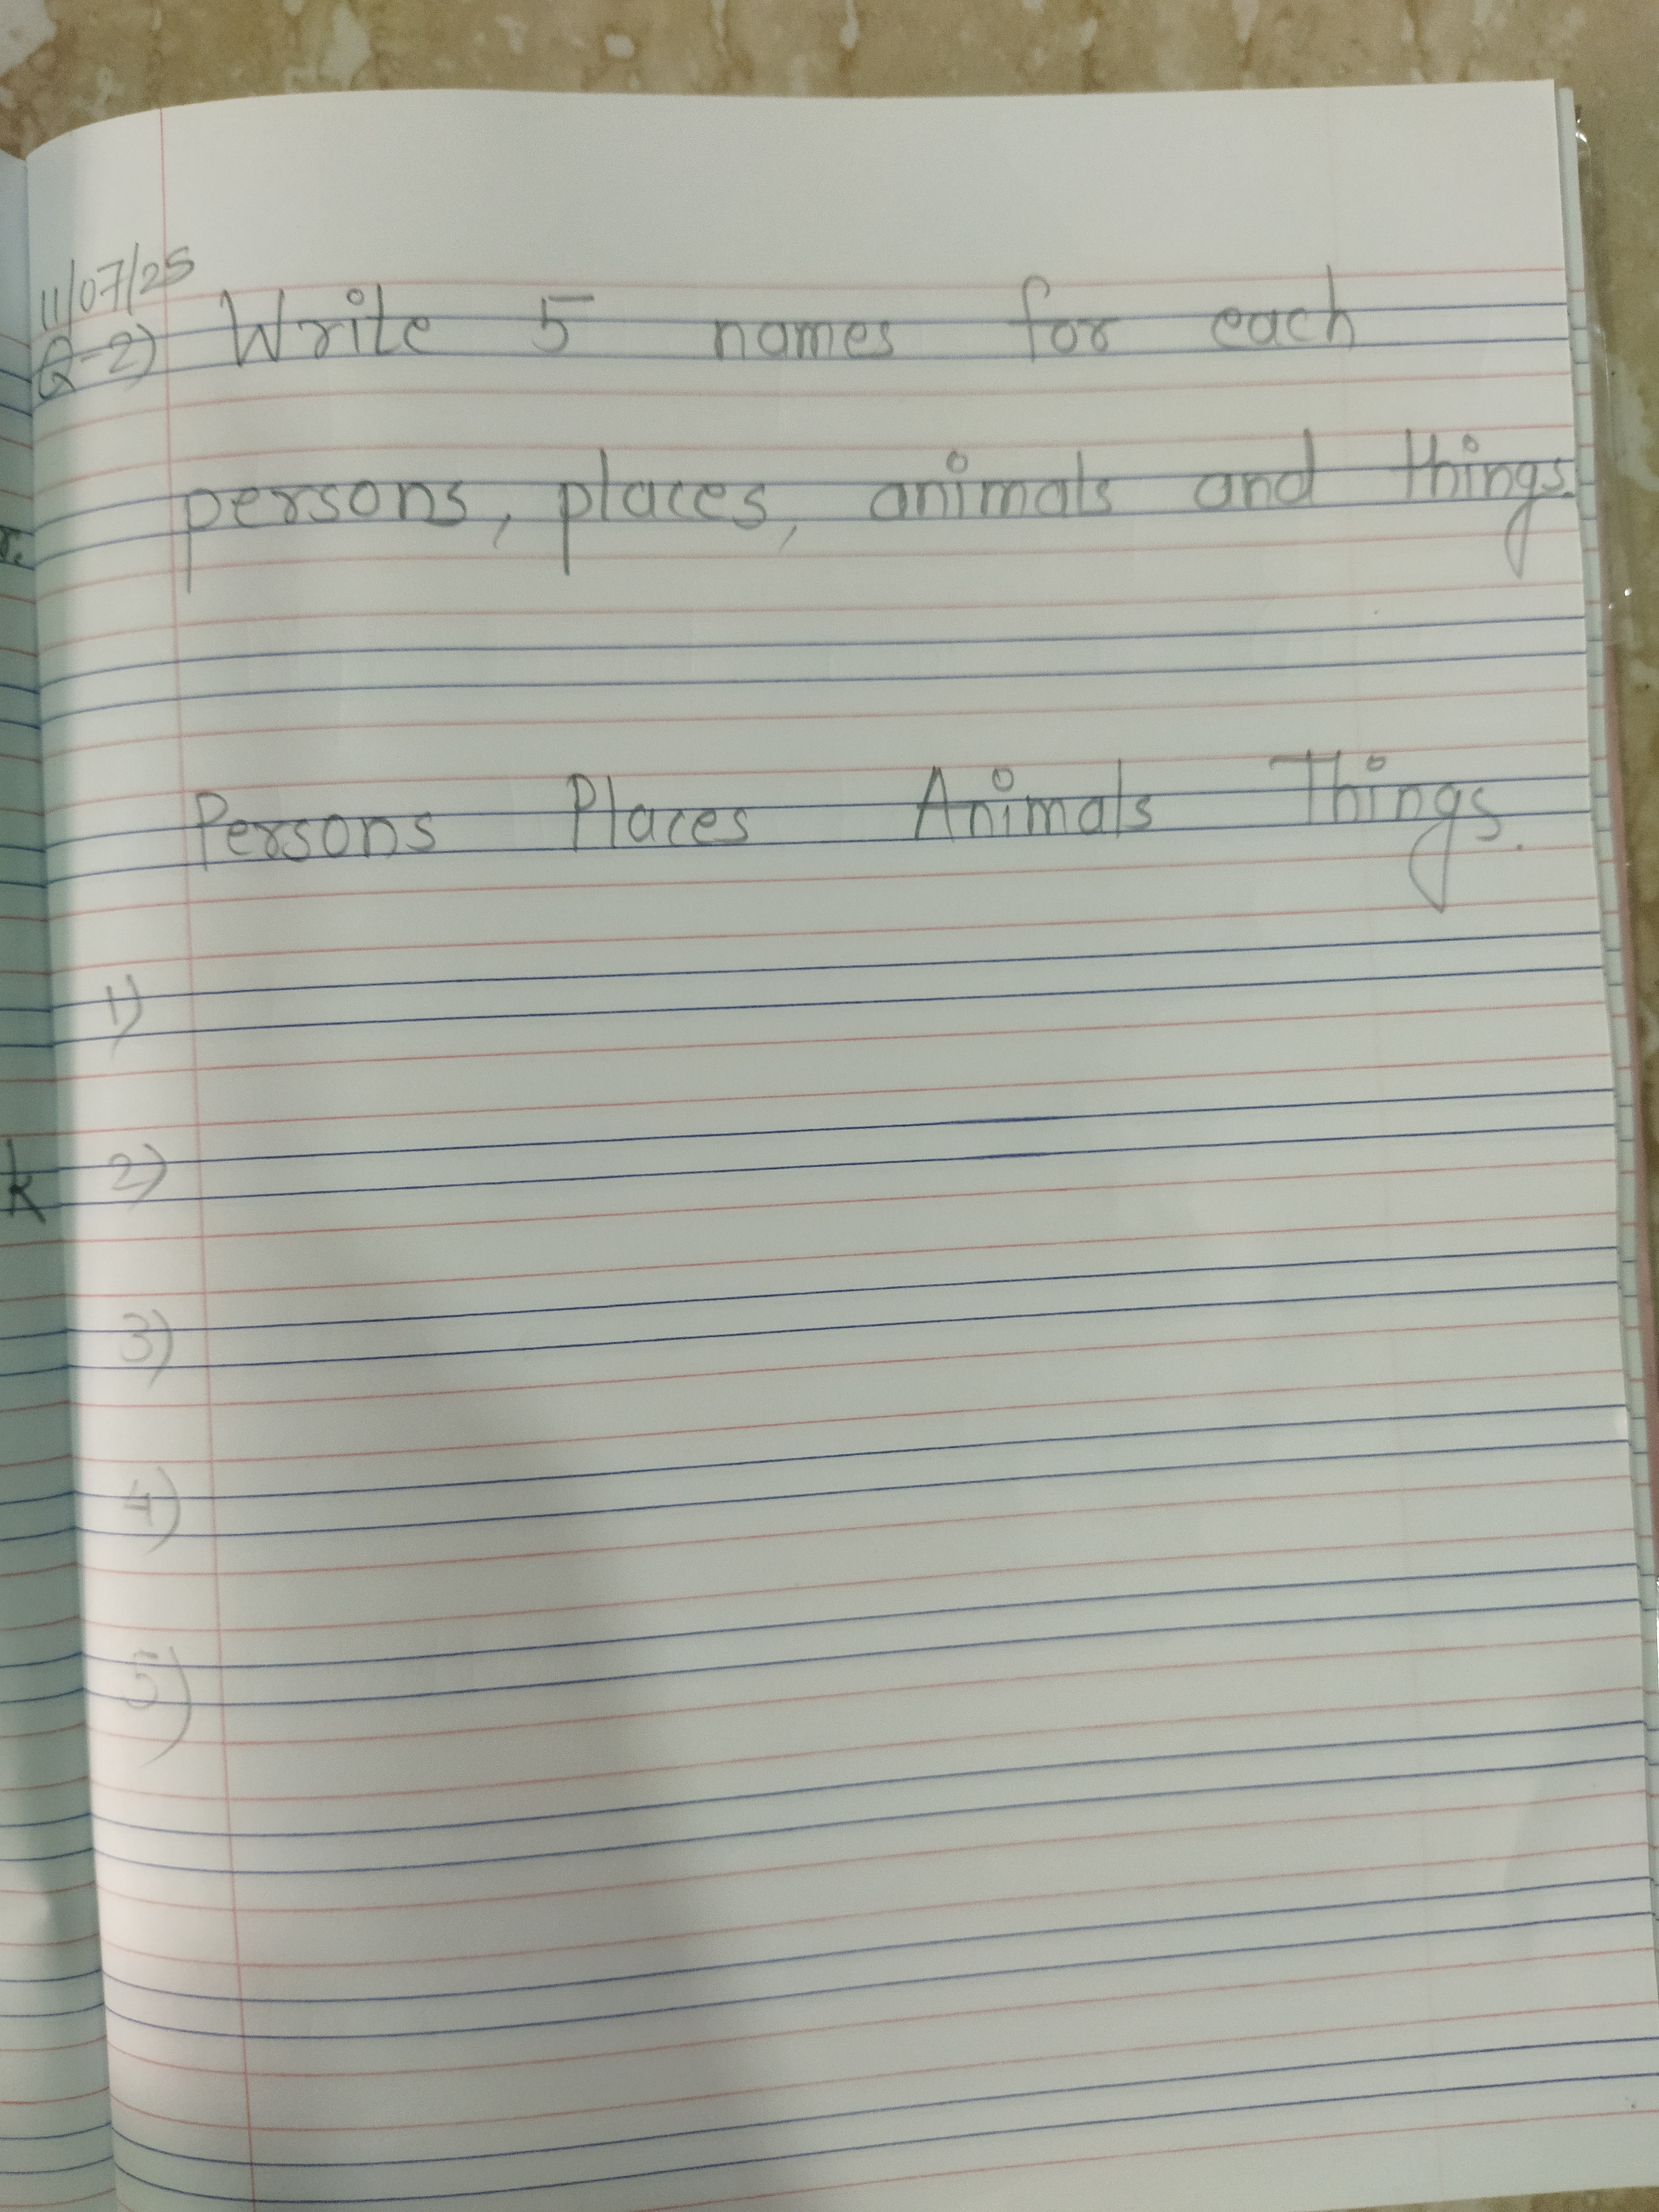 11/07/25
Q-2) Write 5 names for each
persons, places, animals and things.
Persons Places Animals Things.
1)
k 2)
3)
4)
5)